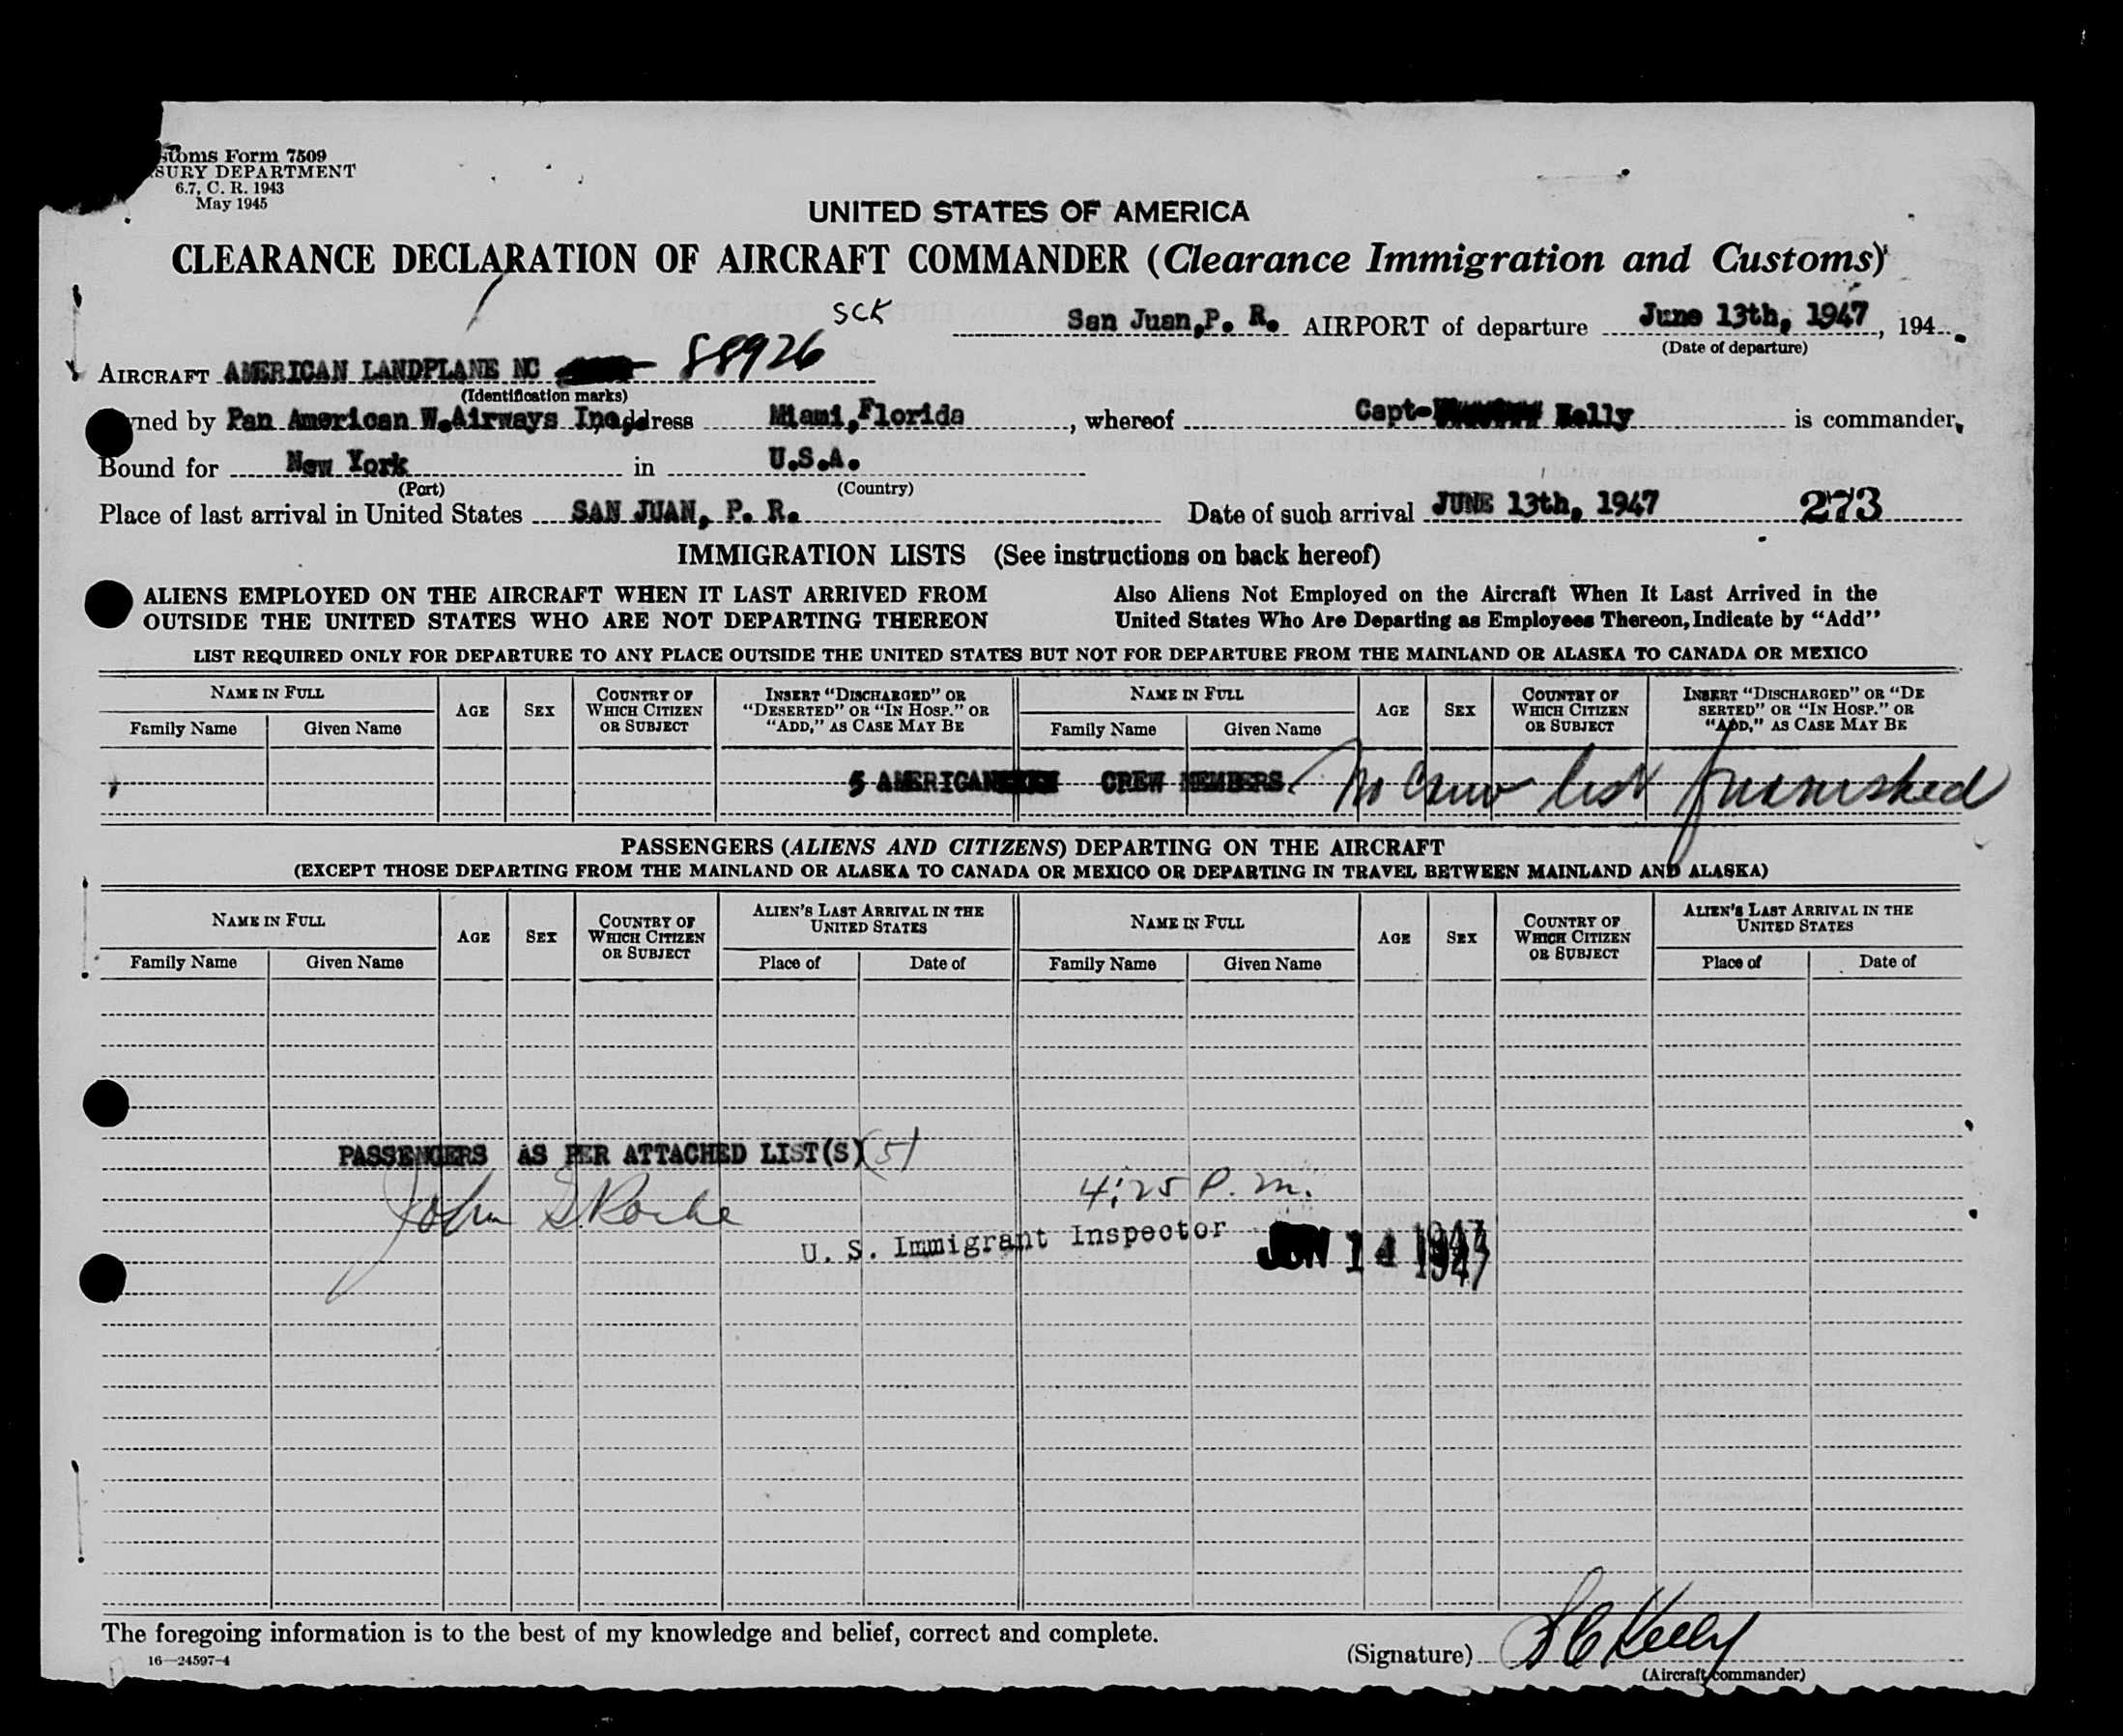 stoms Form 7509
SURY DEPARTMENT
6.7, C. R. 1943
May 1945
UNITED STATES OF AMERICA
CLEARANCE DECLARATION OF AIRCRAFT COMMANDER (Clearance Immigration and Customs)
SCK
San Juan, P. R. AIRPORT of departure June 13th, 1947, 194
(Date of departure)
AIRCRAFT AMERICAN LANDPLANE NC 88926
(Identification marks)
ned by Pan American W.Airways Inc, address Miami, Florida, whereof Capt- Kelly is commander,
Bound for New York in U.S.A.
(Port) (Country)
Place of last arrival in United States SAN JUAN, P. R. Date of such arrival JUNE 13th, 1947 273
IMMIGRATION LISTS (See instructions on back hereof)
ALIENS EMPLOYED ON THE AIRCRAFT WHEN IT LAST ARRIVED FROM OUTSIDE THE UNITED STATES WHO ARE NOT DEPARTING THEREON
Also Aliens Not Employed on the Aircraft When It Last Arrived in the United States Who Are Departing as Employees Thereon, Indicate by "Add"
LIST REQUIRED ONLY FOR DEPARTURE TO ANY PLACE OUTSIDE THE UNITED STATES BUT NOT FOR DEPARTURE FROM THE MAINLAND OR ALASKA TO CANADA OR MEXICO
NAME IN FULL AGE SEX COUNTRY OF WHICH CITIZEN OR SUBJECT INSERT "DISCHARGED" OR "DESERTED" OR "IN HOSP." OR "ADD," AS CASE MAY BE NAME IN FULL AGE SEX COUNTRY OF WHICH CITIZEN OR SUBJECT INSERT "DISCHARGED" OR "DESERTED" OR "IN HOSP." OR "ADD," AS CASE MAY BE
Family Name Given Name Family Name Given Name
5 AMERICAN CREW MEMBERS. No Crew list furnished
PASSENGERS (ALIENS AND CITIZENS) DEPARTING ON THE AIRCRAFT
(EXCEPT THOSE DEPARTING FROM THE MAINLAND OR ALASKA TO CANADA OR MEXICO OR DEPARTING IN TRAVEL BETWEEN MAINLAND AND ALASKA)
NAME IN FULL AGE SEX COUNTRY OF WHICH CITIZEN OR SUBJECT ALIEN'S LAST ARRIVAL IN THE UNITED STATES NAME IN FULL AGE SEX COUNTRY OF WHICH CITIZEN OR SUBJECT ALIEN'S LAST ARRIVAL IN THE UNITED STATES
Family Name Given Name Place of Date of Family Name Given Name Place of Date of
PASSENGERS AS PER ATTACHED LIST(S) (5)
John S Roche 4:25 P.m.
U. S. Immigrant Inspector JUN 14 1947
The foregoing information is to the best of my knowledge and belief, correct and complete.
16—24597-4
(Signature) S C Kelly
(Aircraft commander)